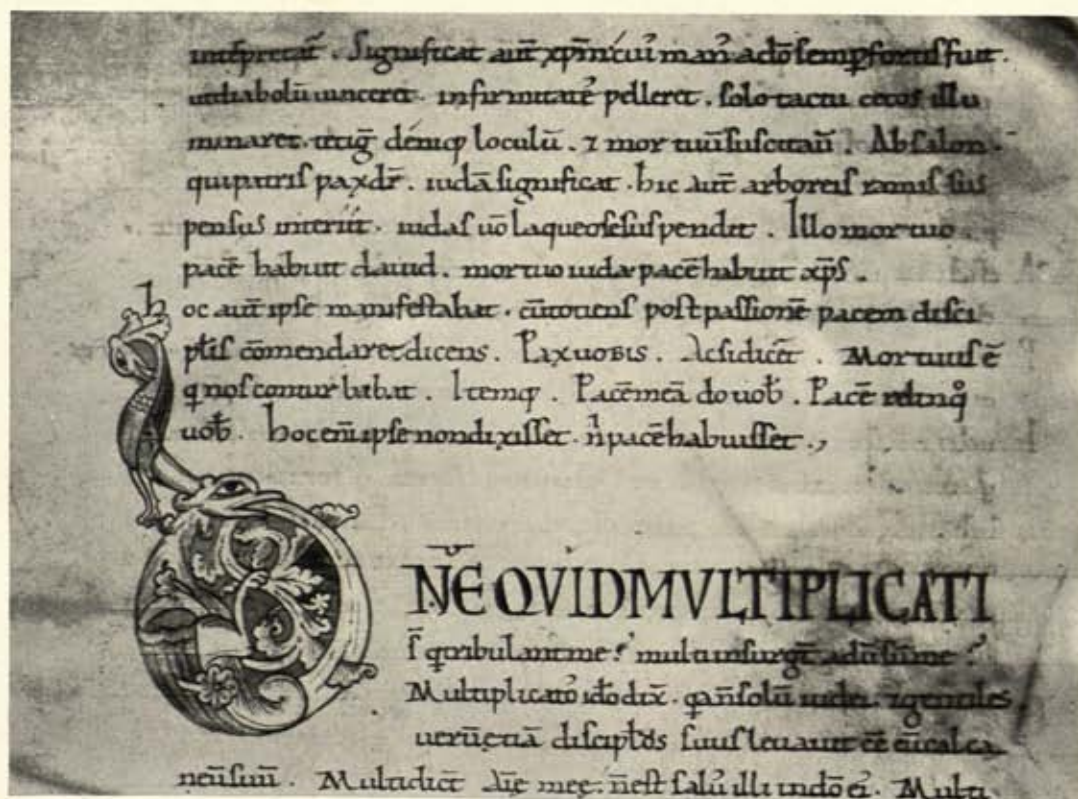 int̄pretat̄ . Significat aut̄ xp̄m cui᾽ man᾽ adōſemp̱ fortiſ fuit .
utdiabolū uinceret . infirmitatē pelleret . ſolo tactu cecoſ illu
minaret . tetiḡ deniq; loculū . ⁊ mortuūſuſcitauit . Abſalon .
quipatriſ paxdr̄ . iudā ſignificat . hic aut̄ arboreiſ ramiſ ſuſ
penſuſ interiit . iudaſ uō laqueoſeſuſpendit . Illo mortuo
pacē habuit dauid . mortuo iuda pacē habuit xp̄s .
hoc aut̄ ipſe manifeſtabat . cū totienſ poſt paſſionē pacem diſci
pƚiſ cōmendaret dicenſ . Paxuobiſ . Acſidicēt . Mortuuſ ē
q noſ conturbabat . Itemq; . Pacē meā do uob̄ . Pacē relinq̊
uob̄ . hoc enī ipſe non dixiſſet . n̄ pacē habuiſſet .,
DN̄E QVID MVLTIPLICATI
ſ̄ q tribulant me ? multi inſurgūt aduſū me ?
Multiplicatoſ ido dix̄ . qa n̄ ſolū iudei . ⁊ gentileſ
uerūetiā diſcipƚoſ ſuuſ leuauit ēē eū calca
neūſuū . Multi dicūt aīe mee . n̄ eſt ſaluſ illi in dō ei᾽ . Multi